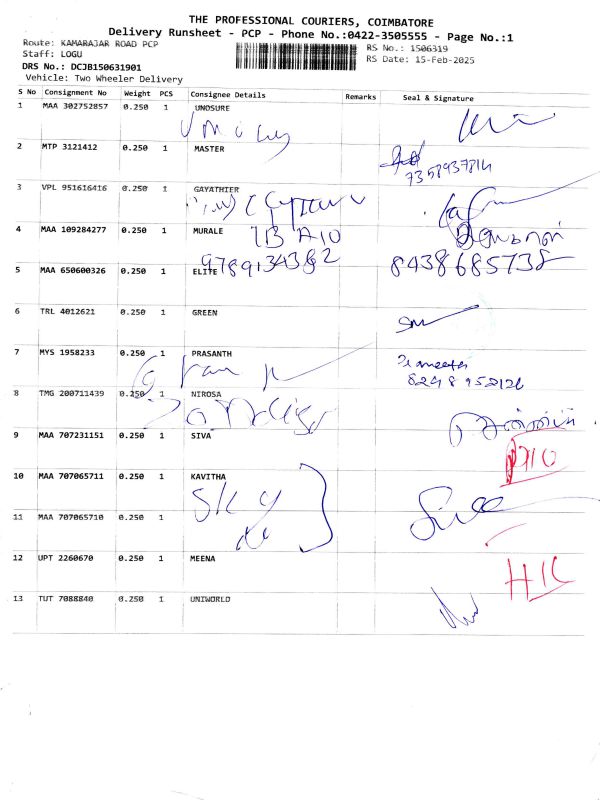 THE PROFESSIONAL COURIERS, COIMBATORE
Delivery Runsheet - PCP - Phone No.:0422-3505555 - Page No.:1
Route: KAMARAJAR ROAD PCP
RS No.: 1506319
Staff: LOGU
RS Date: 15-Feb-2025
DRS No.: DCJB150631901
Vehicle: Two Wheeler Delivery
S No Consignment No Weight PCS Consignee Details Remarks Seal & Signature
1 MAA 302752857 0.250 1 UNOSURE
2 MTP 3121412 0.250 1 MASTER
3 VPL 951616416 0.250 1 GAYATHIER
4 MAA 109284277 0.250 1 MURALE
9789134382 8438685738
5 MAA 650600326 0.250 1 ELITE
6 TRL 4012621 0.250 1 GREEN
7 MYS 1958233 0.250 1 PRASANTH
8 TMG 200711439 0.250 1 NIROSA
9 MAA 707231151 0.250 1 SIVA
10 MAA 707065711 0.250 1 KAVITHA
SKY
11 MAA 707065710 0.250 1
12 UPT 2260670 0.250 1 MEENA
13 TUT 7088840 0.250 1 UNIWORLD